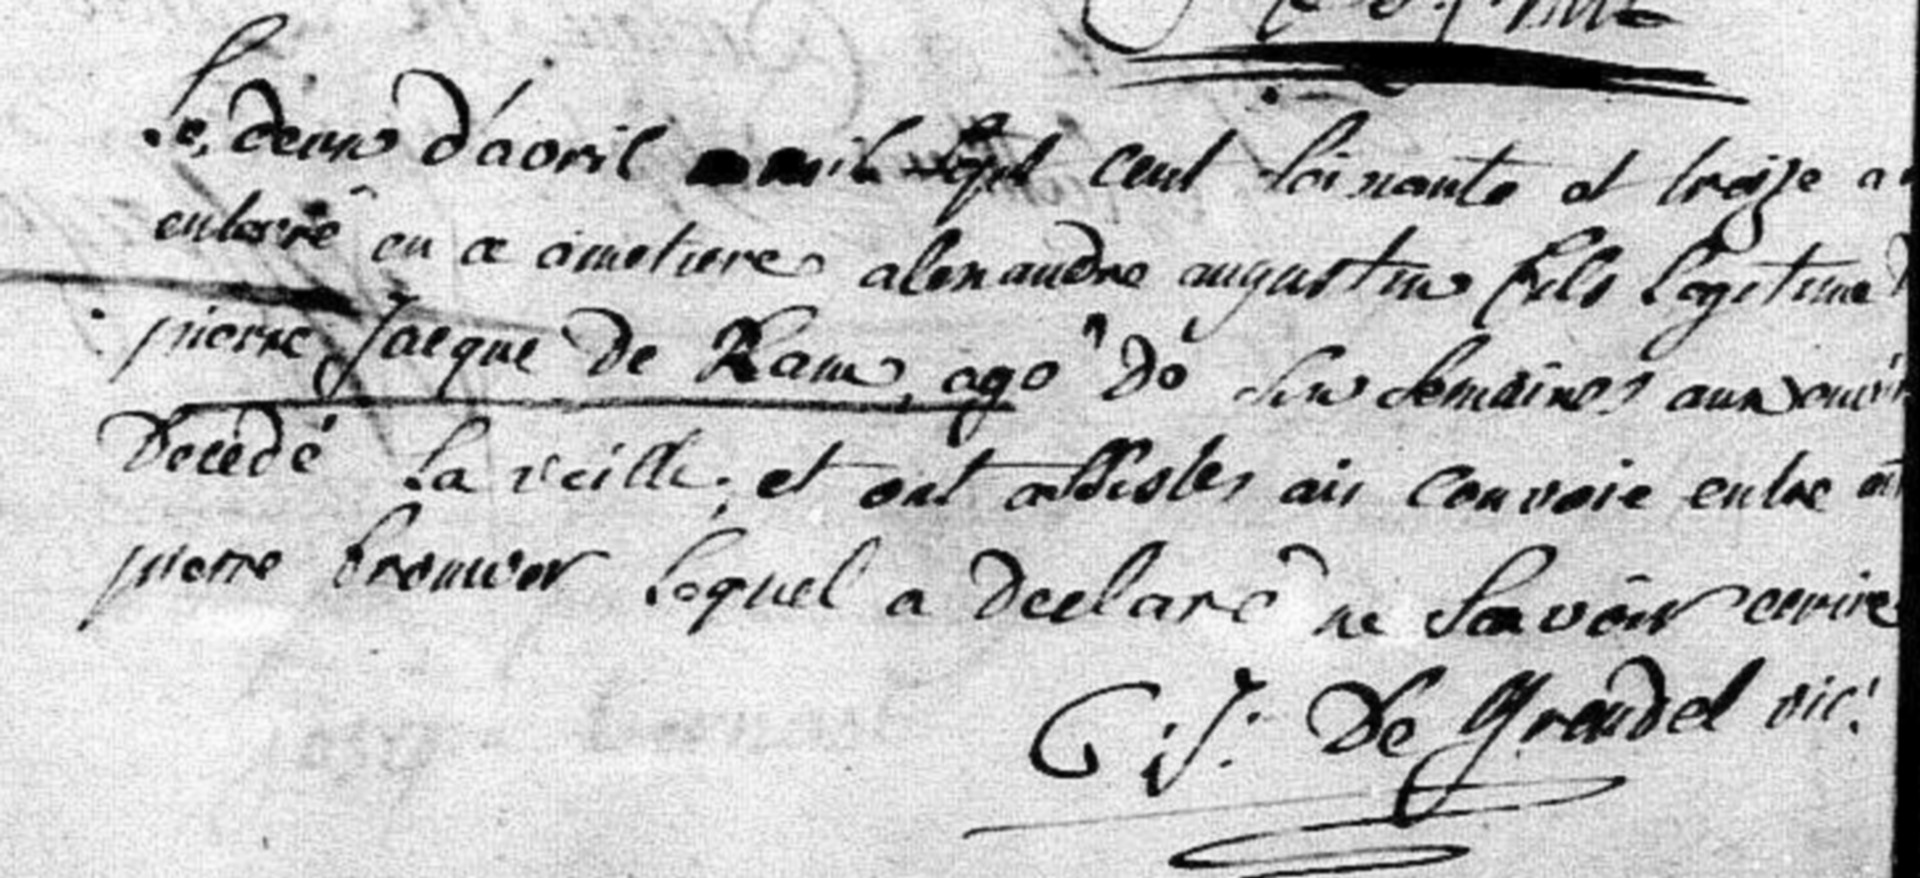 Le deux d'avril mil sept cent soixante et treize a
enterré en ce cimetiere alexandre augustin fils legitime
pierre Jacque de Ram, agé de six semaines aux
Decedé la veille; et ont assistes au convoie entre
pierre brouwer lequel a declaré ne savoir ecrire
C: J: De Grendel vic: